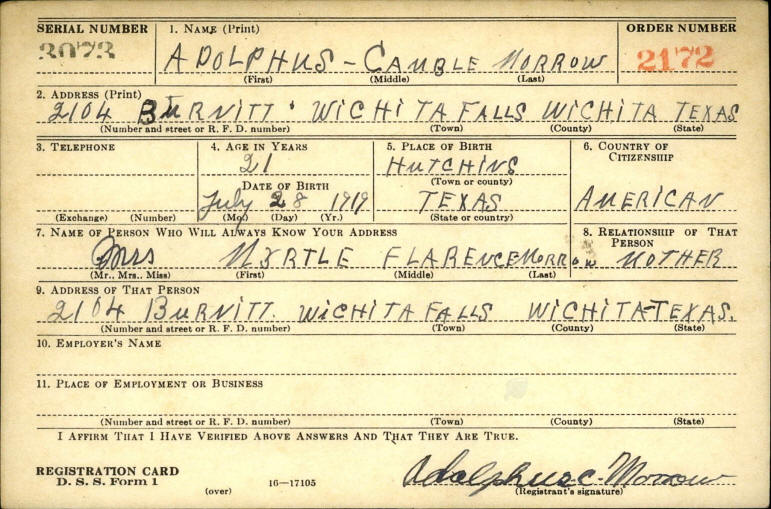 SERIAL NUMBER 1. NAME (Print) ORDER NUMBER
3073 ADOLPHUS - CAUBLE MORROW 2172
(First) (Middle) (Last)
2. ADDRESS (Print)
2104 BURNITT. WICHITA FALLS WICHITA TEXAS
(Number and street or R. F. D. number) (Town) (County) (State)
3. TELEPHONE 4. AGE IN YEARS 5. PLACE OF BIRTH 6. COUNTRY OF CITIZENSHIP
21 HUTCHINS
DATE OF BIRTH (Town or county)
July 28 1919 TEXAS AMERICAN
(Exchange) (Number) (Mo.) (Day) (Yr.) (State or country)
7. NAME OF PERSON WHO WILL ALWAYS KNOW YOUR ADDRESS 8. RELATIONSHIP OF THAT PERSON
Mrs MYRTLE FLARENCE MORROW MOTHER
(Mr., Mrs. Miss) (First) (Middle) (Last)
9. ADDRESS OF THAT PERSON
2104 BURNITT. WICHITA FALLS WICHITA-TEXAS.
(Number and street or R. F. D. number) (Town) (County) (State)
10. EMPLOYER'S NAME
11. PLACE OF EMPLOYMENT OR BUSINESS
(Number and street or R. F. D. number) (Town) (County) (State)
I AFFIRM THAT I HAVE VERIFIED ABOVE ANSWERS AND THAT THEY ARE TRUE.
REGISTRATION CARD Adolphus C. Morrow
D. S. S. Form 1 (over) 16—17105 (Registrant's signature)